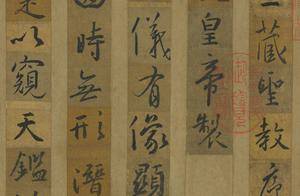 三藏聖教序
皇帝製
儀有像顯
四時無形潛
是以窺天鑑